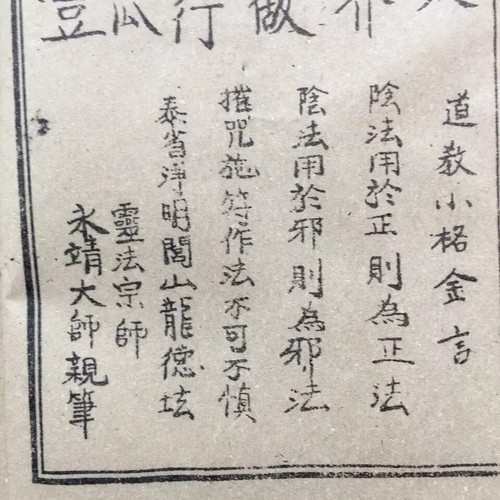 做
行
瓜
道教小格金言
陰法用於正則為正法
陰法用於邪則為邪法
摧咒施符作法不可不慎
泰省淨明閭山龍德坛
靈法宗師
永靖大師親筆